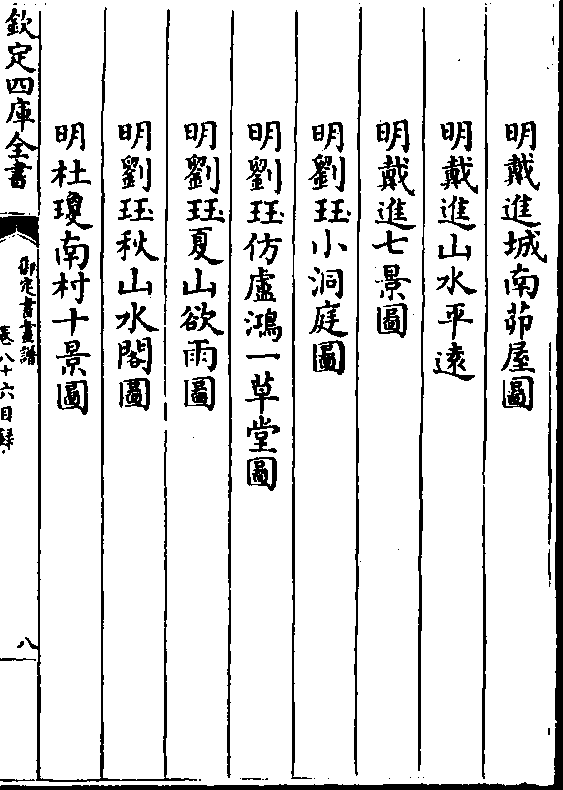 明戴進城南茆屋圖
明戴進山水平遠
明戴進七景圖
明劉珏小洞庭圖
明劉珏仿盧鴻一草堂圖
明劉珏夏山欲雨圖
明劉珏秋山水閣圖
明杜瓊南村十景圖
欽定四庫全書
御定書畫譜
卷八十六目録
八